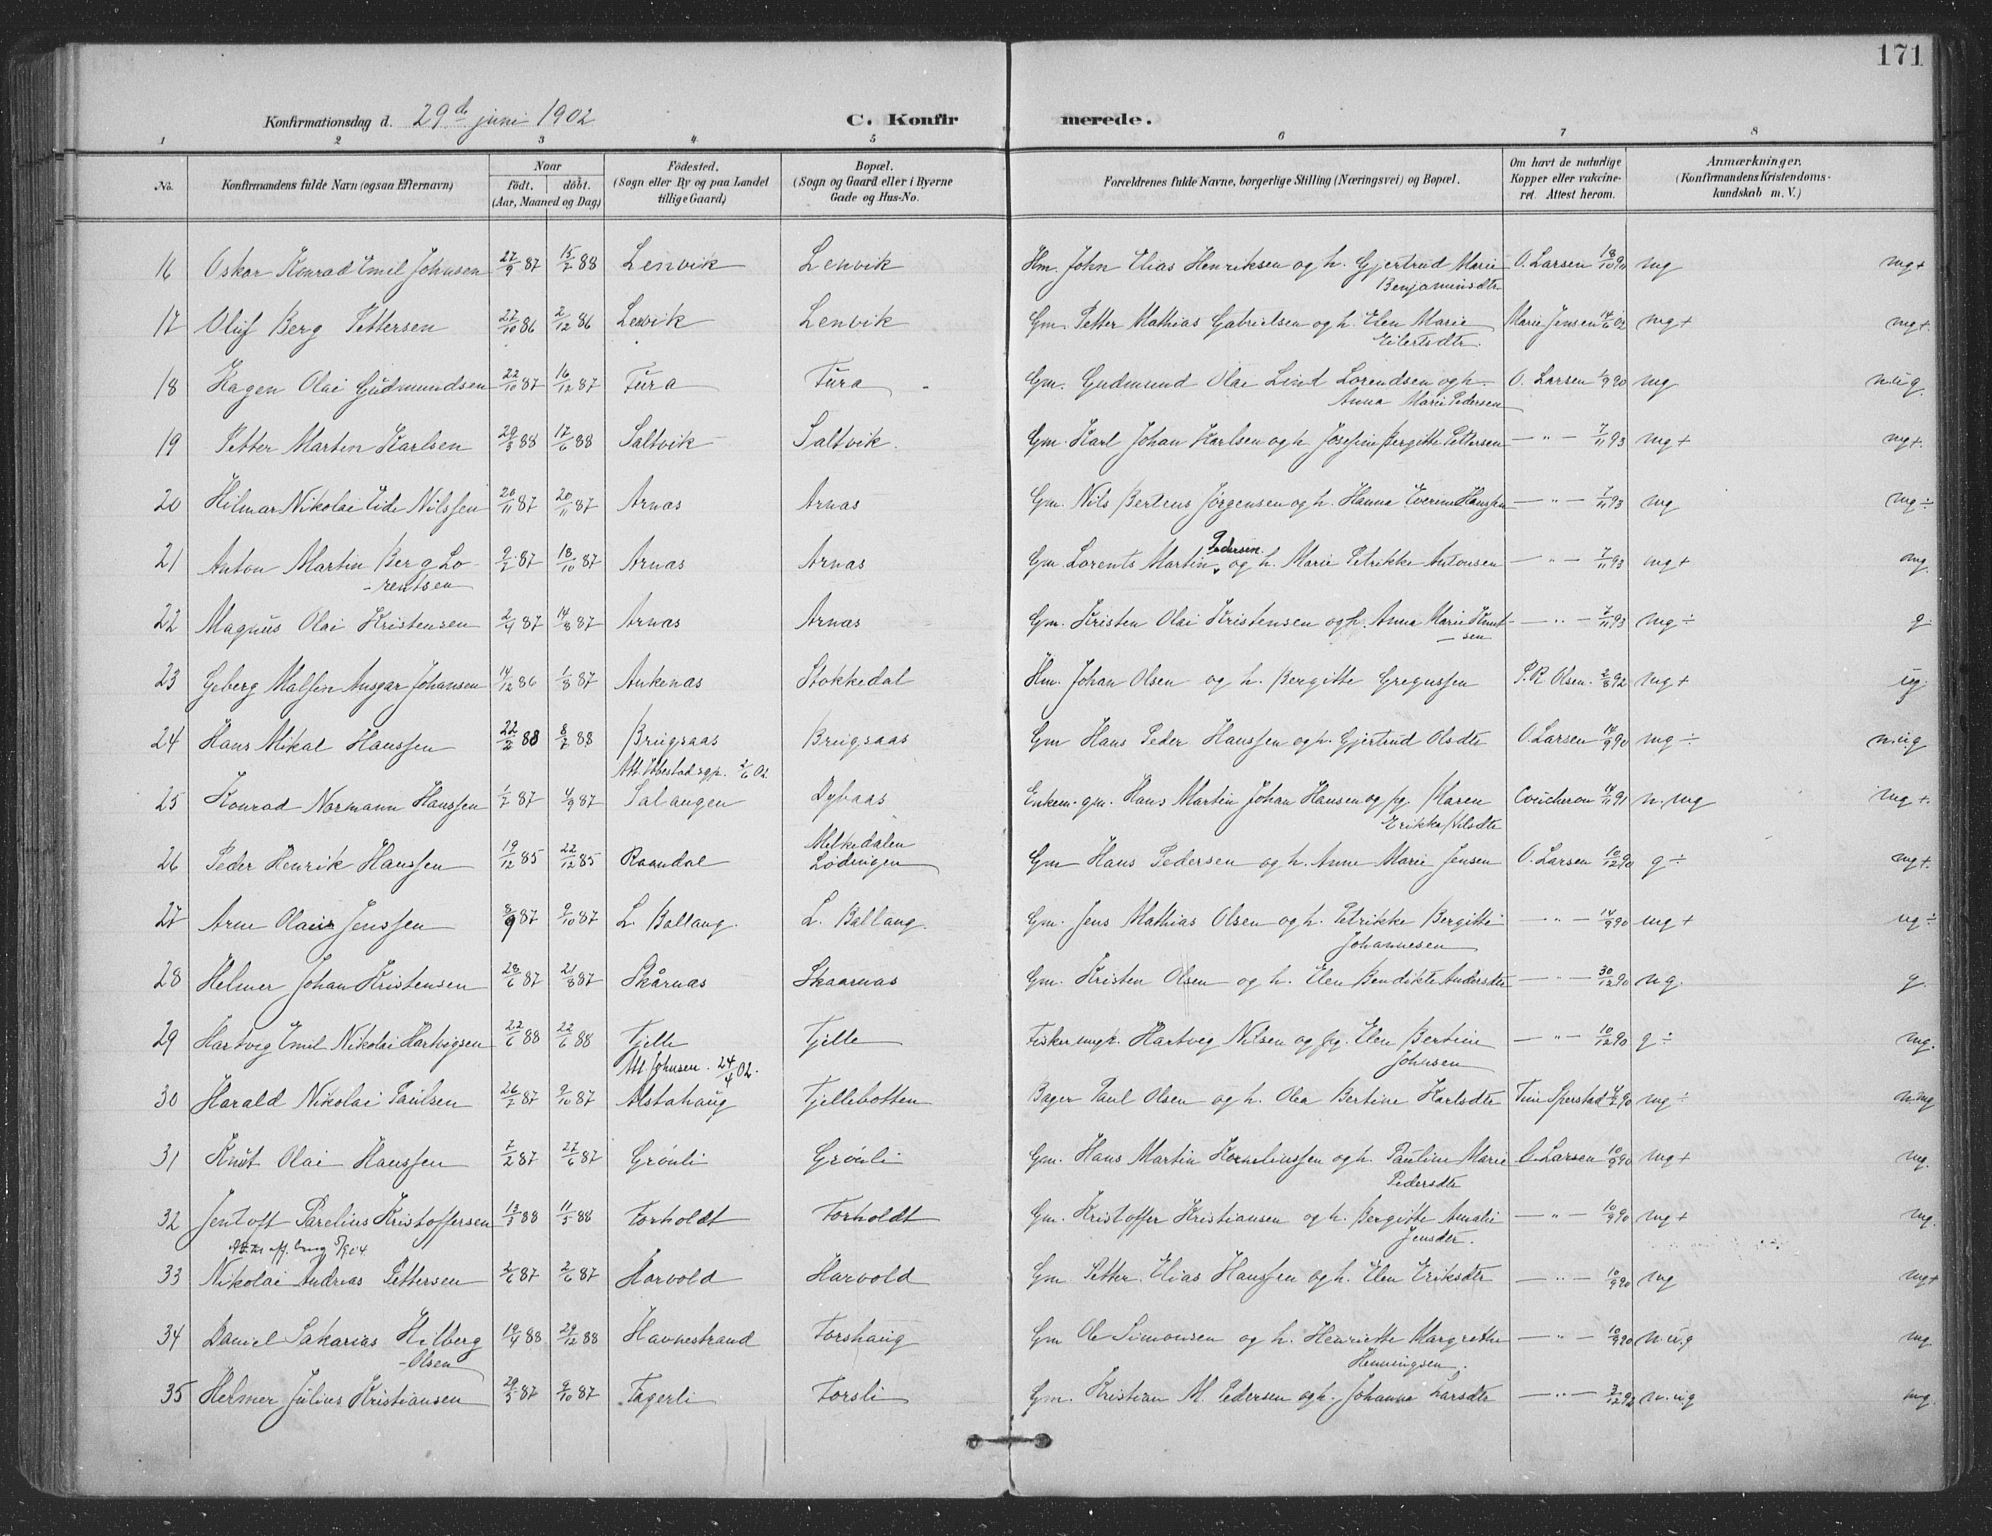 171
Konfirmationsdag d. 29de juni 1902 C. Konfirmerede.
1 2 3 4 5 6 7 8
No. Konfirmandens fulde Navn (ogsaa Efternavn) Naar født. døbt. (Aar, Maaned og Dag) Fødested. (Sogn eller By og paa Landet tillige Gaard) Bopæl. (Sogn og Gaard eller i Byerne Gade og Hus-No. Forældrenes fulde Navne, borgerlige Stilling (Næringsvei) og Bopæl. Om havt de naturlige Kopper eller vakcineret. Attest herom. Anmærkninger. (Konfirmandens Kristendomskundskab m. V.)
16 Oskar Konrad Emil Johnsen 27/9 87 15/7 88 Lenvik Lenvik Hm. John Elias Henriksen og h. Gjertrud Marie O. Larsen 18/10 90 mg mg+
Benjaminsdtr
17 Oluf Berg Pettersen 27/10 86 2/12 86 Lenvik Lenvik Gm. Petter Mathias Gabrielsen og h. Elen Marie Marie Jensen 14/6 02 mg+ mg+.
Eilertsdtr.
18 Hagen Olai Gudmundsen 22/10 87 16/12 87 Fura Fura Gm. Gudmund Olai Lind Lorendsen og h. O. Larsen 1/9 90 mg n.ug.
Anna Marie Pedersen
19 Petter Martin Karlsen 29/3 88 17/6 88 Saltvik Saltvik. Gm. Karl Johan Karlsen og h. Josefine Bergitte Pettersen — " — 7/11 93 mg+ mg+.
20 Hilmar Nikolai Eide Nilssen 20/11 87 Arnæs Arnæs Gm. Nils Bertens Jörgensen og h. Hanna Everine Hanssen — " — 7/11 93 mg mg÷
21 Anton Martin Berg Lo- 2/2 87 18/10 87 Arnæs Arnæs Gm. Lorents Martin Pedersen og h. Marie Petrikke Antonsen — " — 7/11 93 mg+ mg.
-rentsen
22 Magnus Olai Kristensen 2/4 87 14/8 87 Arnæs Arnæs Gm. Kristen Olai Kristensen og h. Anna Marie Knut- — " — 7/11 93 mg÷ g.
-sen
23 Geberg Malfin Ansgar Johansen 14/12 86 1/8 87 Ankenæs Stokkedal Hm. Johan Olsen og h. Bergitte Gregussen P.R Olsen. 2/8 92 mg+ ug.
24 Hans Mikal Hanssen 22/2 88 8/7 88 Brugsaas Brugsaas Gm Hans Peder Hanssen og h. Gjertrud Olsdtr O. Larsen 14/9 90 mg÷ n.ug
Att. Ibestad sgp. 2/6 02
25 Konrad Normann Hanssen 1/7 87 4/9 87 Salangen Dybaas Enkem. gm. Hans Martin Johan Hansen og pg. Karen 14/11 91 n. mg mg+.
Erikka Nilsdtr
26 Peder Henrik Hanssen 19/12 85 22/12 85 Raandal Melkedalen Lødingen Gm Hans Pedersen og h. Anne Marie Jensen O. Larsen 10/12 90 g÷ mg+.
27 Arne Olaus Jenssen 8/9 87 9/10 87 L. Ballang. L. Ballang. Gm. Jens Mathias Olsen og h. Petrikke Bergitte — " — 14/9 90 mg+ ug÷
Johannesen
28 Helmer Johan Kristensen 28/6 87 21/8 87 Skårnæs Skaarnæs Gm. Kristen Olsen og h. Elen Bendikte Andersdtr — " — 30/12 90 n g. g.
29 Hartvig Emil Nikolai Hartvigsen 22/6 88 22/6 88 Fjelle Fjelle Fisker ungk. Hartvig Nilsen og pg. Elen Bertine — " — 10/12 90 g÷ mg.
Johnsen
Att. Johnsen. 24/4 02.
30 Harald Nikolai Paulsen 26/7 87 9/10 87 Alstahaug Fjellebotten Bager Paul Olsen og h. Olea Bertine Karlsdtr mg÷ n.mg
31 Knut Olai Hanssen 7/2 87 27/6 87 Grönli Grönli Gm. Hans Martin Korneliussen og h. Pauline Marie O. Larsen 10/9 90 mg+ mg.
Pedersdtr
32 Jentoft Parelius Kristoffersen 13/3 88 11/5 88 Forholdt Forholdt Gm. Kristoffer Kristiansen og h. Bergitte Amalie — " — 10/9 90 mg+ mg.
Jensdtr.
33 Nikolai Andreas Pettersen 2/6 87 2/6 87 Harvold Harvold Gm Petter Elias Hanssen og h. Elen Eriksdtr — " — 10/9 90 mg mg+
34 Daniel Sakarias Hilberg 19/4 88 29/12 88 Havnestrand Forshaug Gm Ole Simonsen og h. Henriette Margrethe — " — 10/9 90 n.ug mg.
-Olsen Henningsen.
35 Helmer Julius Kristiansen 29/3 87 9/10 87 Fagerli Forsli Gm. Kristian M. Pedersen og h. Johanna Larsdtr — " — 3/12 92 n.ug mg.